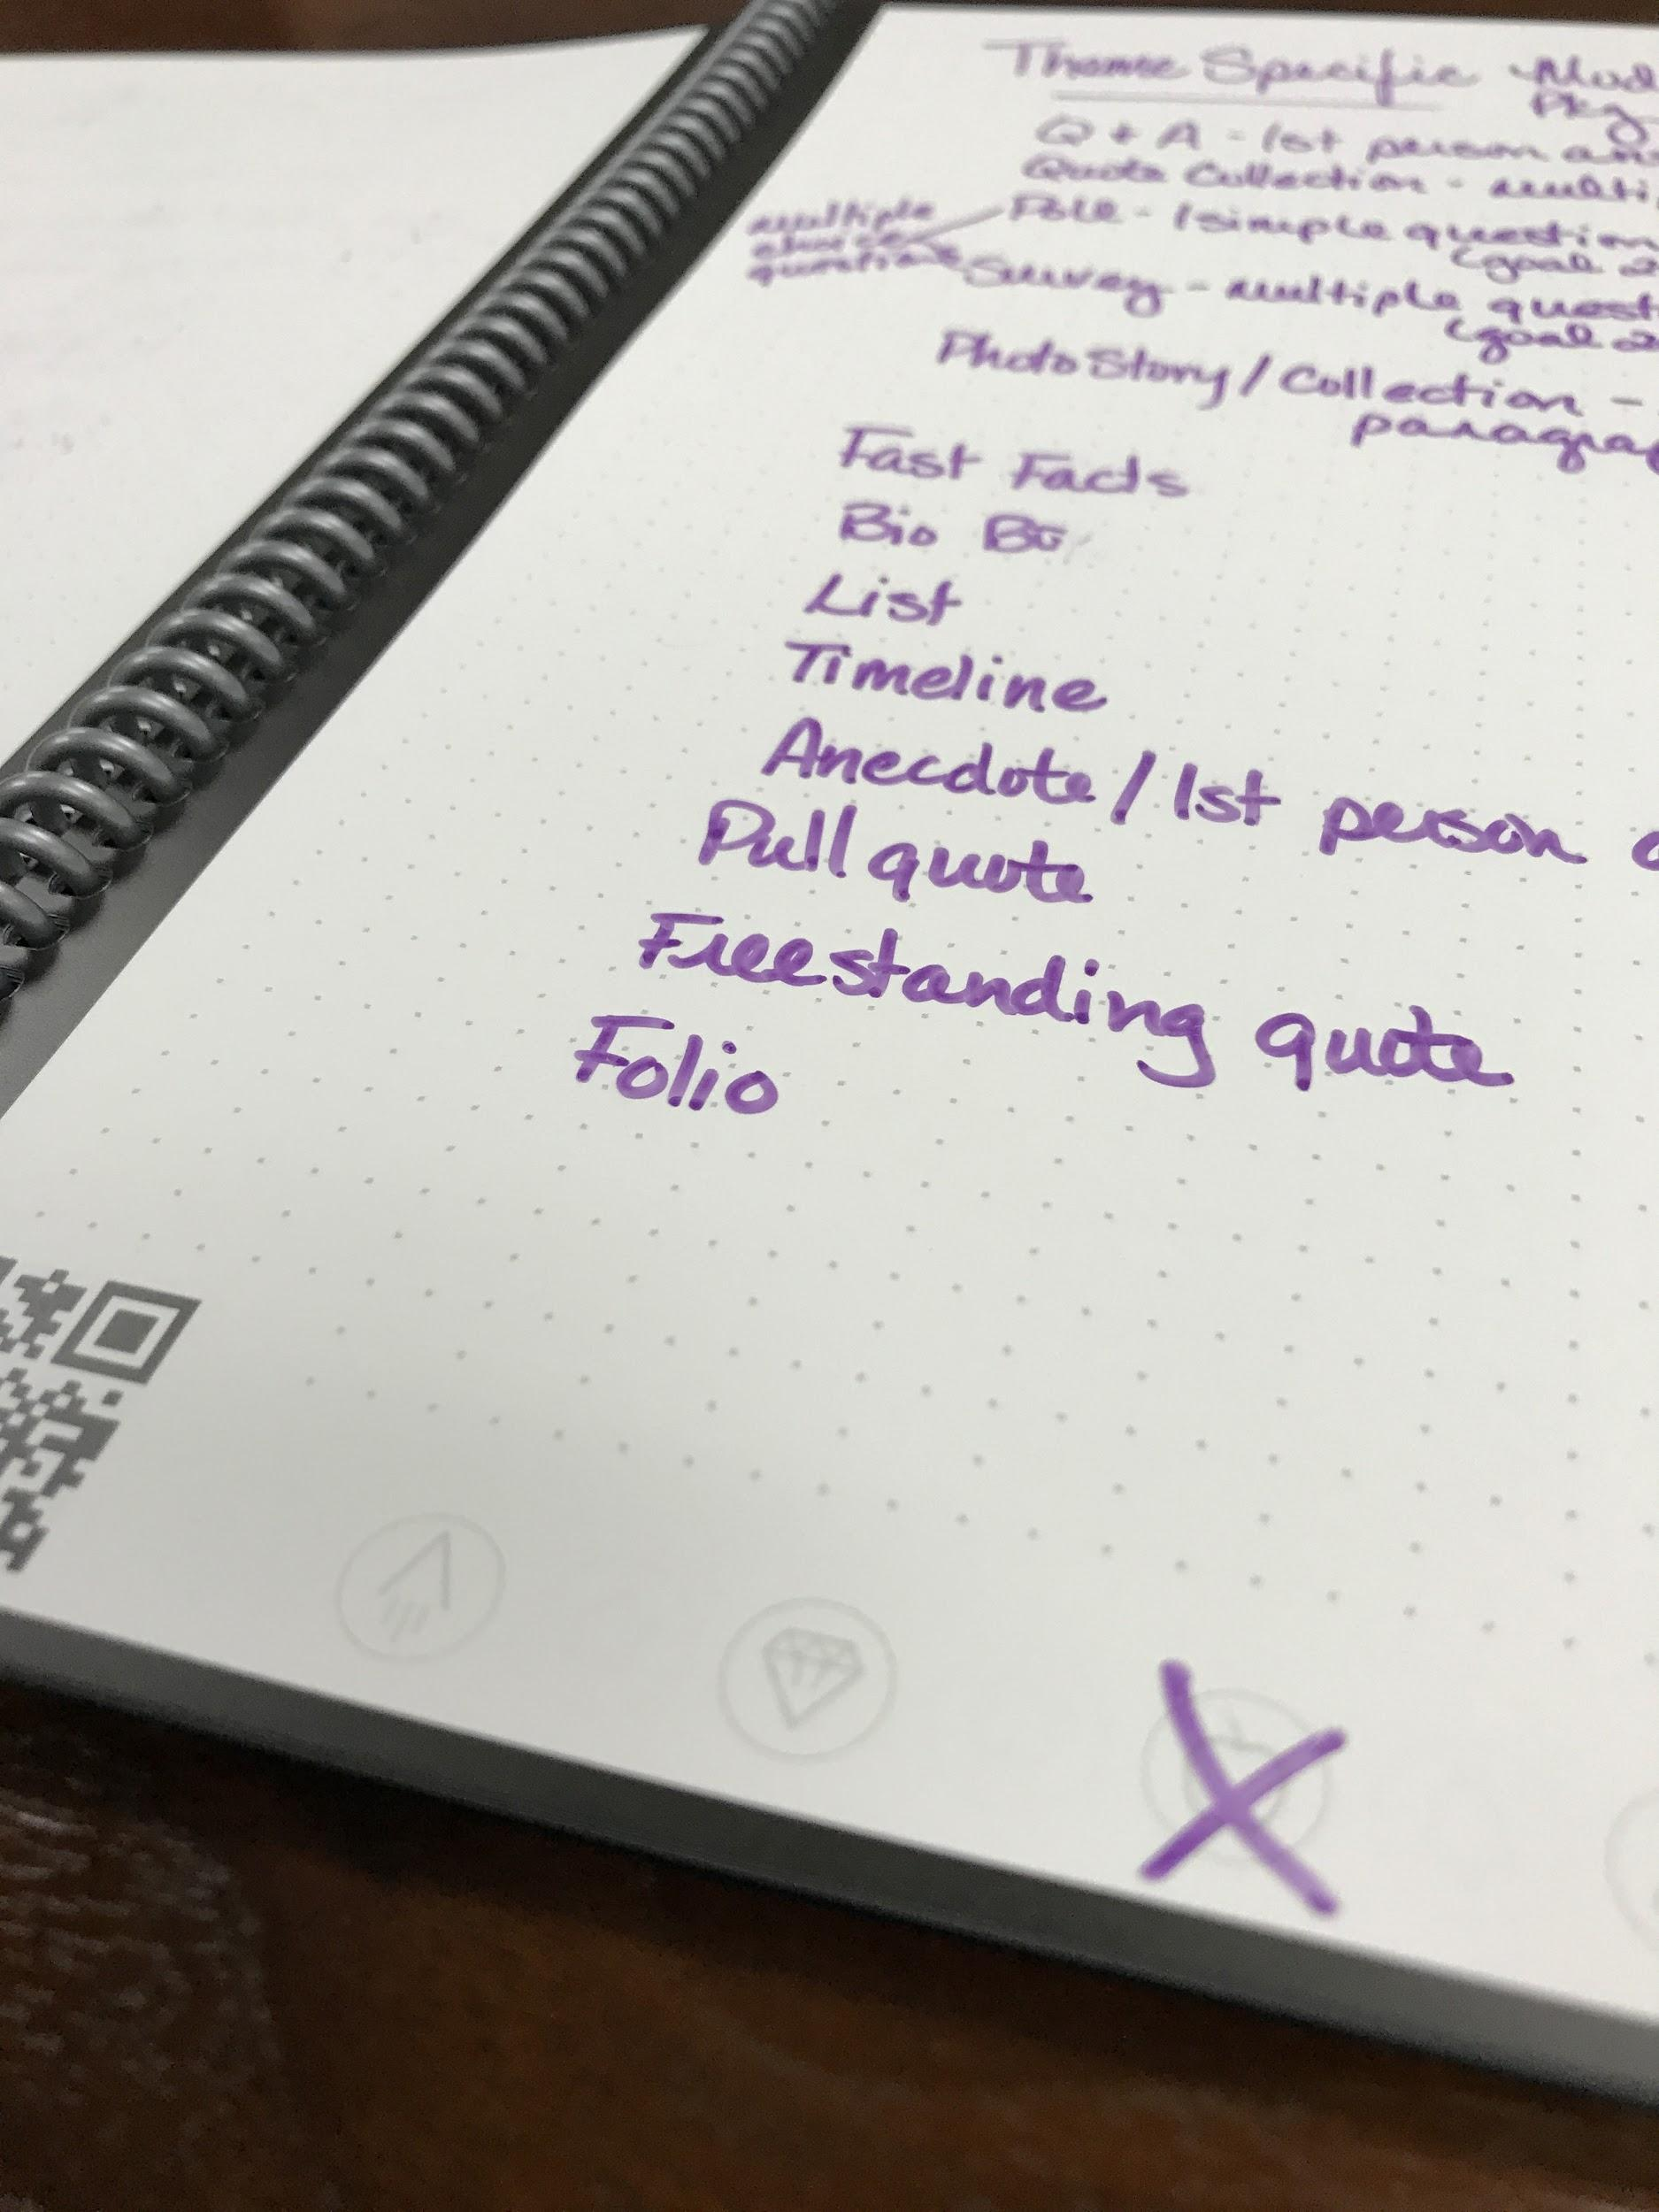 Theme Specific Mod
Pkg
Q + A - 1st person an
Quote Collection - multi
multiple
choice
questions
Poll - 1 simple question
(goal 2
Survey - multiple quest
(goal 2
Photo Story / Collection -
paragra
Fast Facts
Bio Bo
List
Timeline
Anecdote / 1st person
Pull quote
Freestanding quote
Folio
X